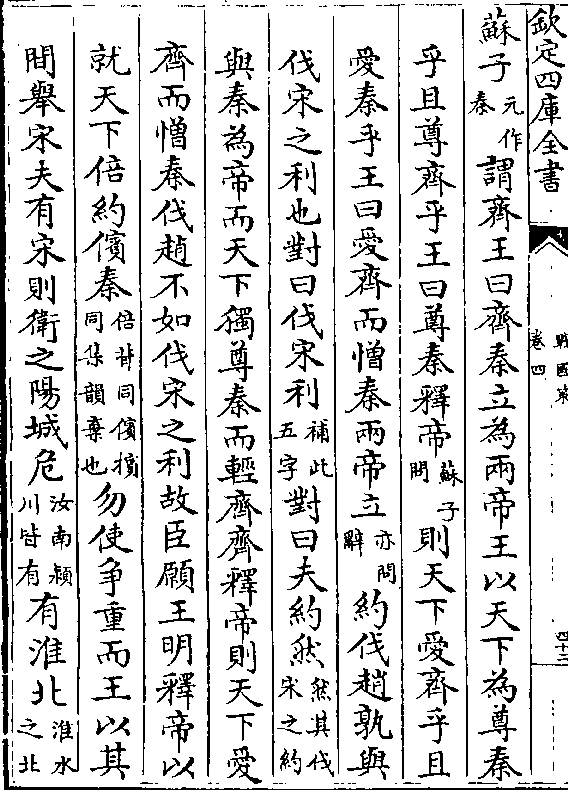 欽定四庫全書
戰國策
卷四
四十三
蘇子元作秦謂齊王曰齊秦立為兩帝王以天下為尊秦
乎且尊齊乎王曰尊秦釋帝蘇子問則天下愛齊乎且
愛秦乎王曰愛齊而憎秦兩帝立亦問辭約伐趙孰與
伐宋之利也對曰伐宋利補此五字對曰夫約然然其伐宋之約
與秦為帝而天下獨尊秦而輕齊齊釋帝則天下愛
齊而憎秦伐趙不如伐宋之利故臣願王明釋帝以
就天下倍約儐秦倍背同儐擯同集韻棄也勿使爭重而王以其
間舉宋夫有宋則衛之陽城危汝南潁川皆有有淮北淮水之北